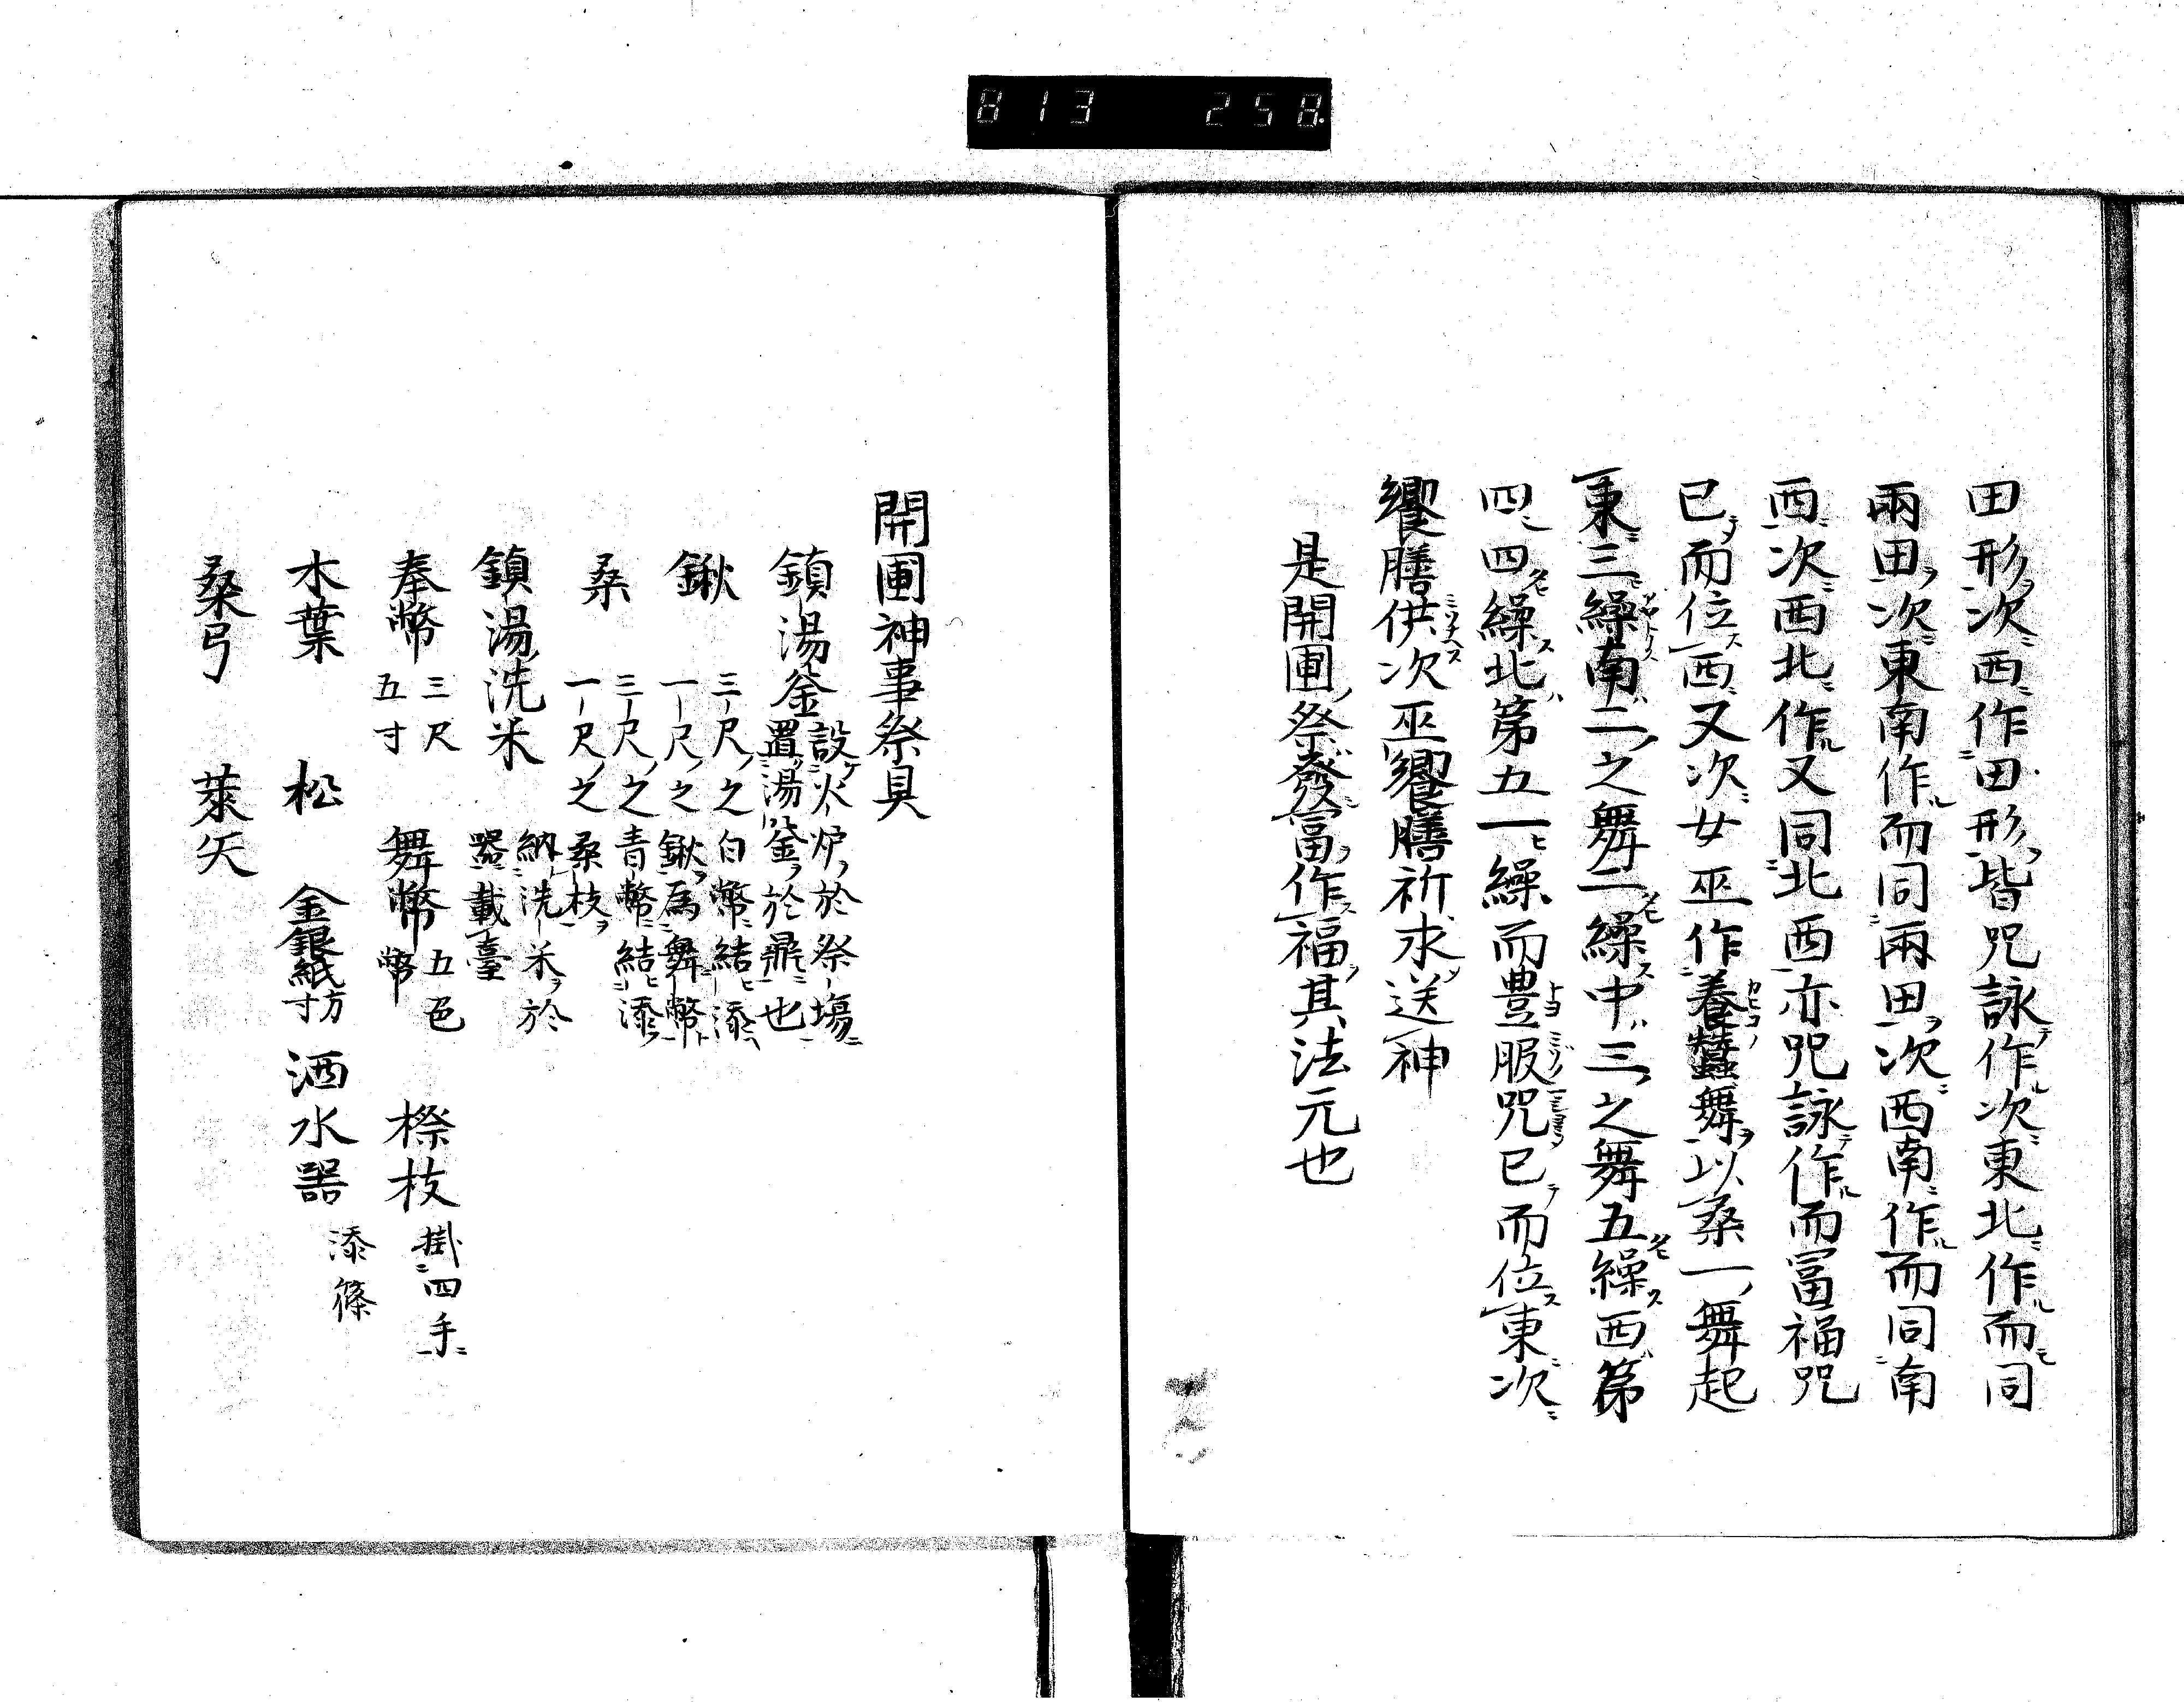 813 258
田形次西作田形皆咒詠作次東北作而同
兩田次東南作而同兩田次西南作而同南
西次西北作又同北西亦咒詠作而冨福咒
已而位西又次女巫作養蠶舞以桒一舞起
東三繰南二之舞二繰中三之舞五繰西第
四四繰北第五一繰而豊服咒已而位東次
饗膳供次巫饗膳祈求送神
是開圃祭發冨作福其法元也
開圃神事祭具
鎮湯釜 設火炉於祭場
置湯釜於鼎也
鍬 三尺之 白幣結添
一尺之 鍬為舞幣
桒 三尺之 青幣結添
一尺之 桒枝
鎮湯洗米 納洗米於
器載臺
奉幣 三尺 五寸 舞幣 五色幣 榊枝 掛四手
木葉 松 金銀紙 方寸 洒水器 添篠
桒弓 蓬矢